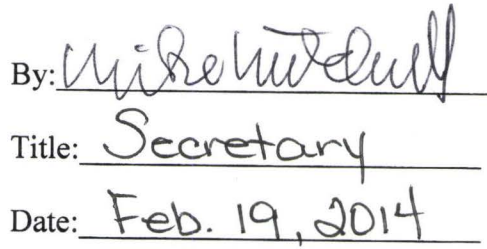 By: Mike Mitchell
Title: Secretary
Date: Feb. 19, 2014